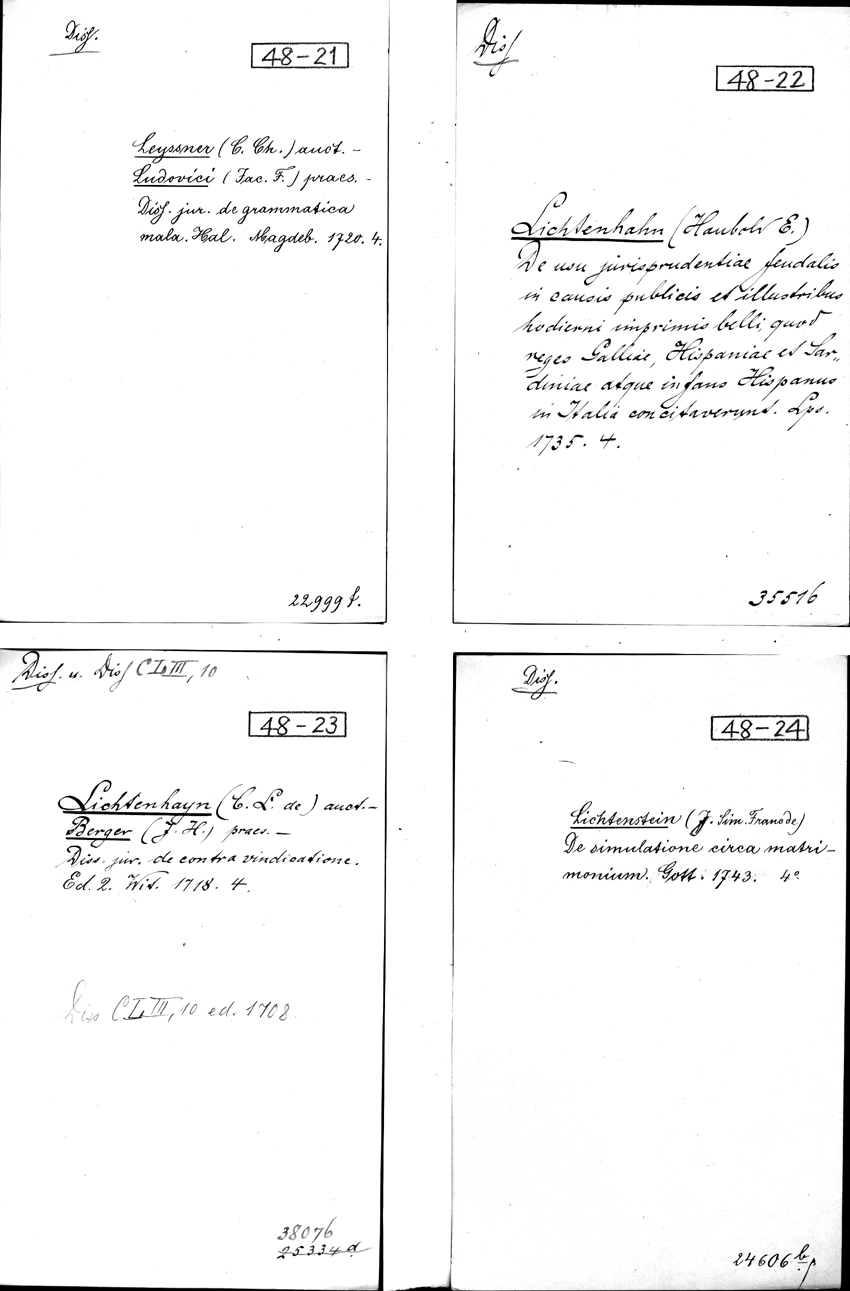 Diss.
48-21
Leyssner (C. Ch.) auct. —
Ludovici (Jac. F.) praes. -
Diss. jur. de grammatica
mala. Hal. Magdeb. 1720. 4.
22999 f.
Diss
48-22
Lichtenhahn (Haubold E.)
De usu jurisprudentiae feudalis
in causis publicis et illustribus
hodierni imprimis belli, quod
reges Galliae, Hispaniae et Sar„
diniae atque infans Hispanus
in Italia concitaverunt. Lps.
1735. 4.
35516
Diss. u. Diss C I, III, 10
48-23
Lichtenhayn (C. L. de) auct. —
Berger (J. H.) praes. —
Diss. jur. de contra vindicatione.
Ed. 2. Wit. 1718. 4.
Diss C I, III, 10 ed. 1708.
38076
25334 d
Diss.
48-24
Lichtenstein (J. Sim. Franc de)
De simulatione circa matri-
monium. Gott. 1743. 4°
24606 b